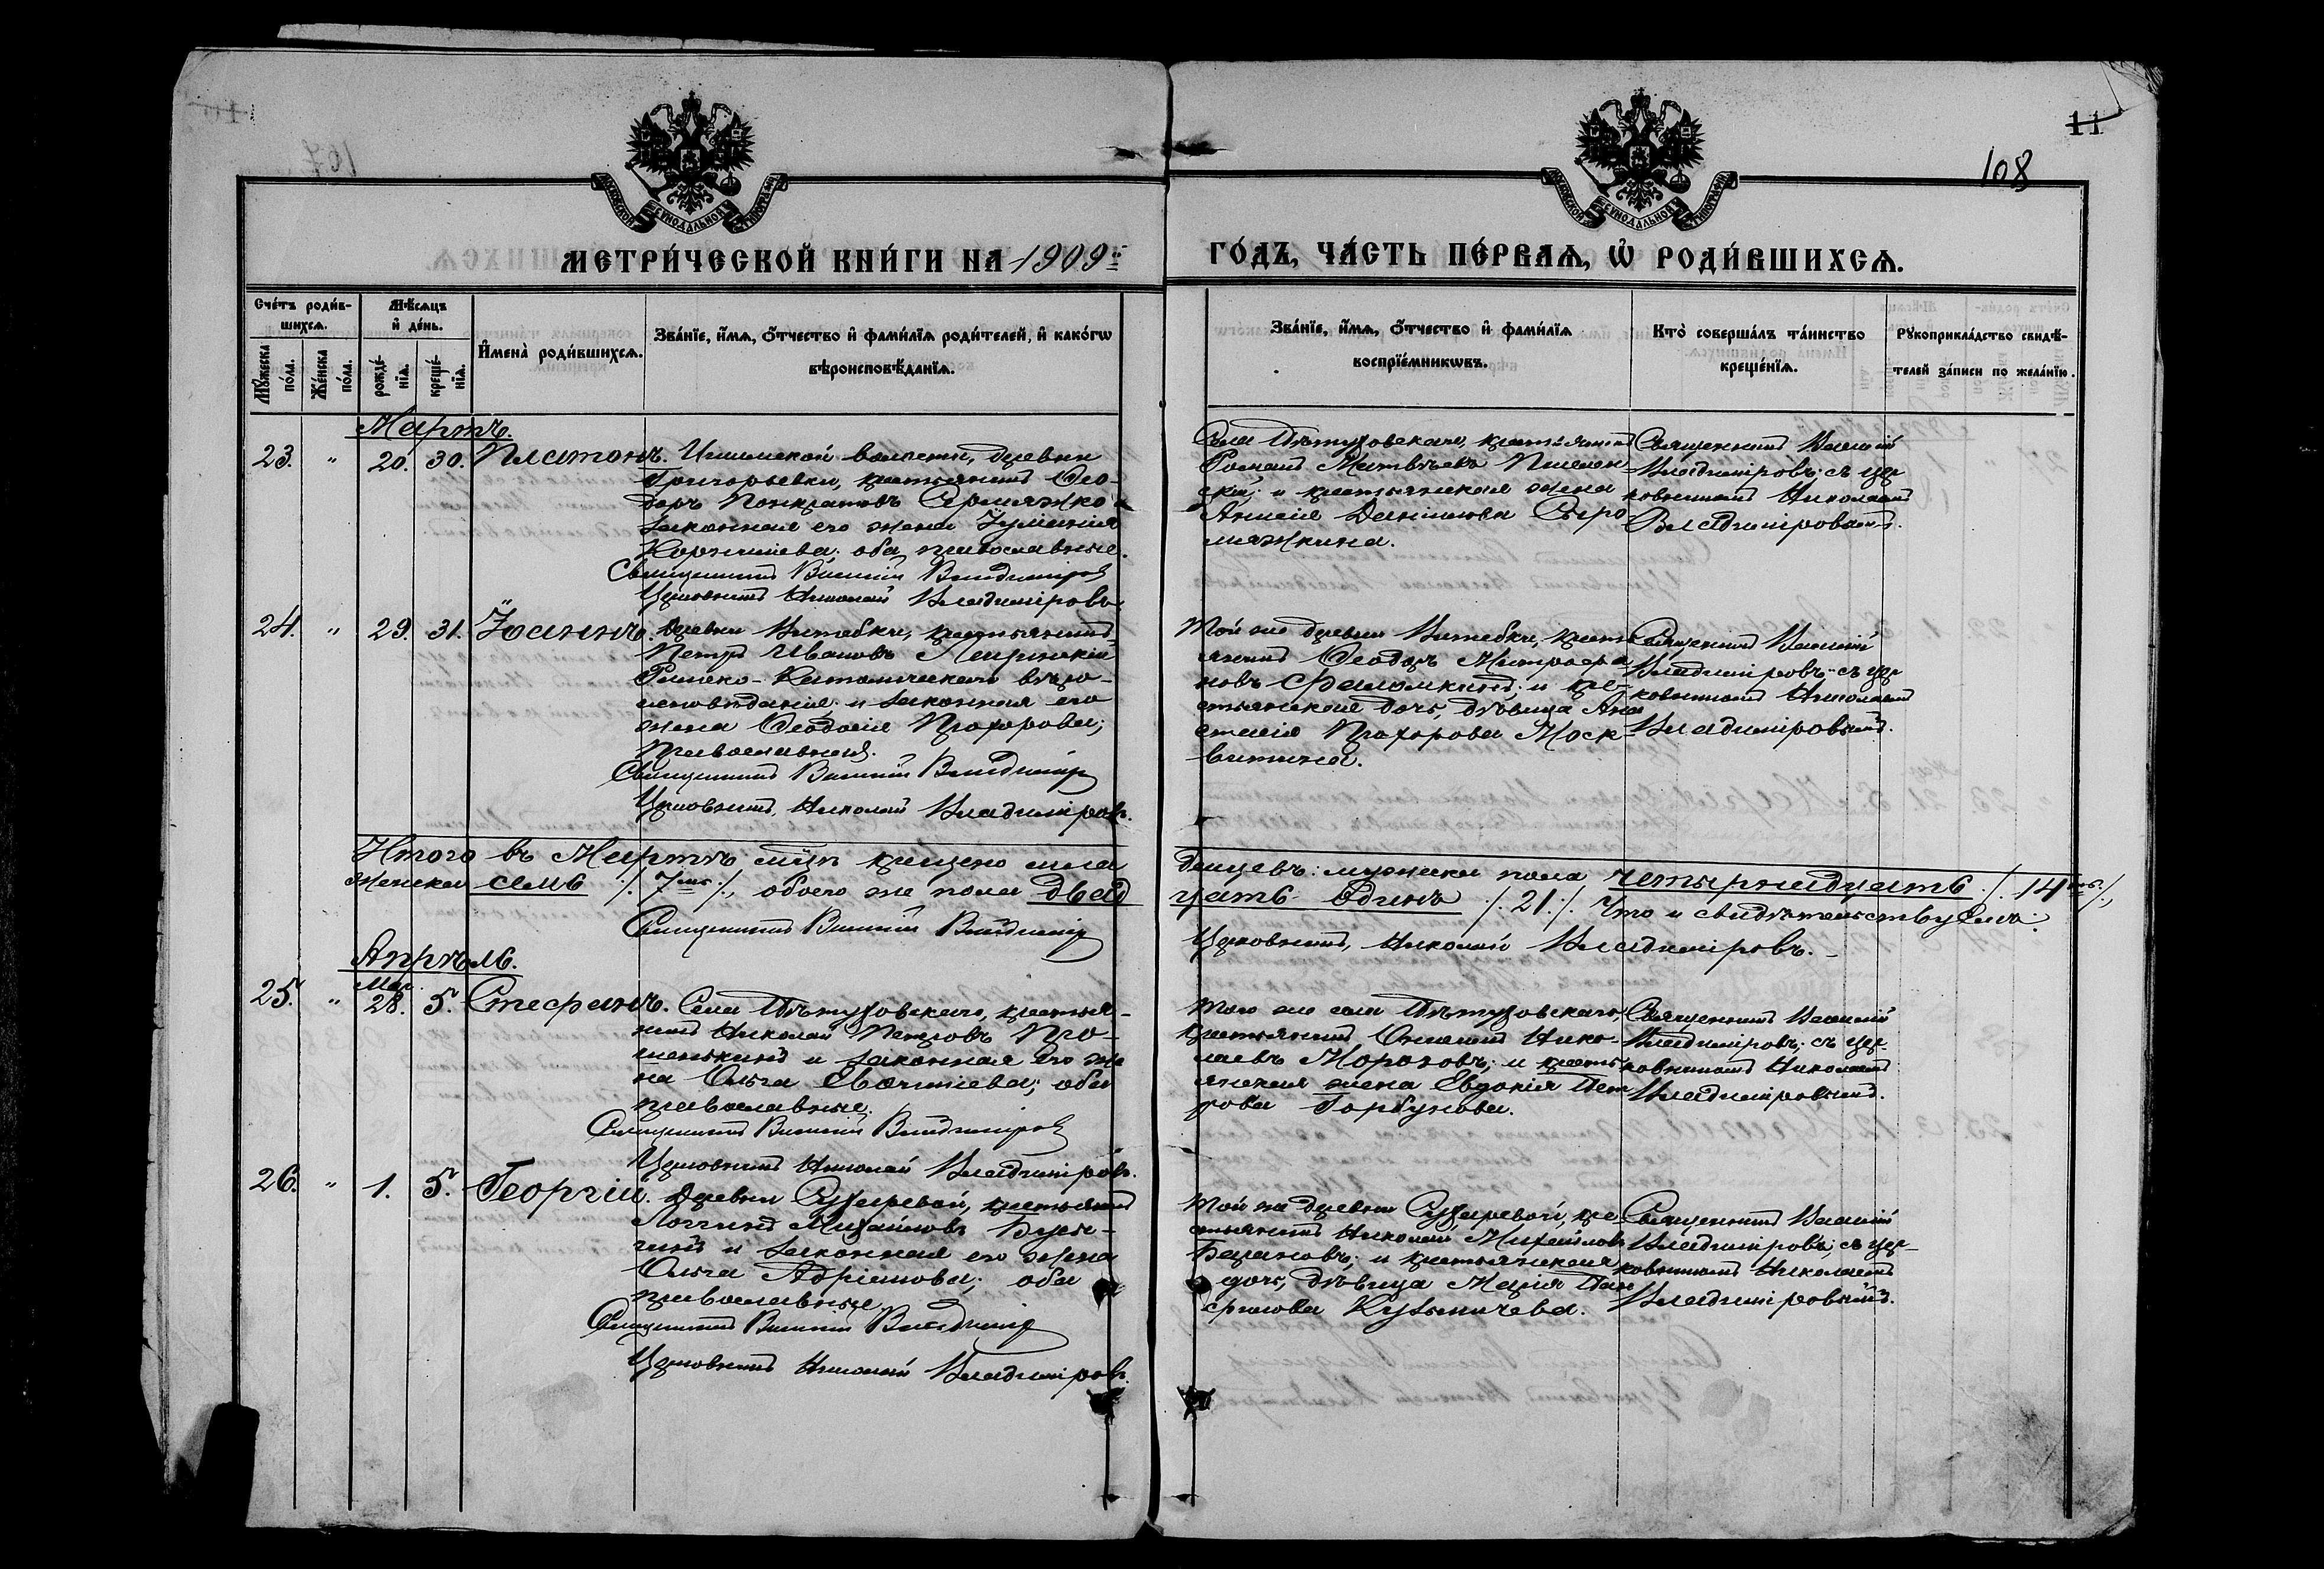 11
108
МОСКОВСКОЙ СѴНОДАЛЬНОЙ ТИПОГРАФІИ
МОСКОВСКОЙ СѴНОДАЛЬНОЙ ТИПОГРАФІИ
МЕТРИ́ЧЕСКОЙ КНИ́ГИ НА 1909й
ГО́ДЪ, ЧА́СТЬ ПЕ́РВАѦ, Ѡ҆ РОДИ́ВШИХСѦ.
Сче́тъ роди́в-
шихсѧ.
Мѣ́сѧцъ
и҆ де́нь.
Мꙋ́жеска по́ла.
Же́нска по́ла.
рожде́-нїѧ.
креще́-нїѧ.
И҆мена̀ роди́вшихсѧ.
Зва́нїе, и҆́мѧ, ѻ҆́тчество и҆ фами́лїѧ роди́телей, и҆ како́гѡ
вѣроисповѣ́данїѧ.
Зва́нїе, и҆́мѧ, ѻ҆́тчество и҆ фами́лїѧ
воспрїе́мникѡвъ.
Кто̀ соверша́лъ та́инство
креще́нїѧ.
Рꙋкоприкла́дство свидѣ́-
телей за́писи по жела́нїю.
Мартъ.
23. " 20. 30. Платонъ. волости, деревни
Григорьевки, крестьянинъ Ѳео-
доръ Понкратовъ
законная его жена
Корнилiева; оба православные.
Священникъ Василій Владиміровъ
Церковникъ Николай Владиміровъ
Села Пѣтуховскаго, крестьянинъ
Романъ Матвѣевъ
и крестьянская жена
Анисія Даніилова
Священникъ Василій
Владиміровъ; съ цер
ковникомъ Николаемъ
Владиміровымъ.
24. " 29. 31. Іоаннъ. Деревни Витебки, крестьянинъ
Петръ Ивановъ
Римско-Католическаго вѣро-
исповѣданія; и законная его
жена Ѳеодосія Прохорова;
Православная.
Священникъ Василій Владиміръ
Церковникъ, Николай Владиміровъ.
Той же деревни Витебки, кресть
янинъ Ѳеодоръ Митрофа
новъ и кре-
стьянская дочь, дѣвица Ана
стасія Прохорова Моск-
витина.
Священникъ Василій
Владиміровъ; съ цер
ковникомъ Николаемъ
Владиміровымъ.
Итого въ Мартѣ м-цѣ крещено мла
денцевъ: мужска пола четырнадцать /. 14ть./,
женска семь /. 7мь /., обоего же пола двад
цать одинъ /. 21./. Что и свидѣтельствуемъ:
Священникъ Василій Владиміръ
Церковникъ, Николай Владиміровъ.
Апрѣль.
Мар.
25. " 28. 5. Стефанъ. Села Пѣтуховскаго, крестья-
нинъ Николай Петровъ Про-
шенькинъ и законная его же
на Ольга оба
православные.
Священникъ Василій Владиміровъ
Церковникъ Николай Владиміровъ.
Того же села Пѣтуховскаго,
крестьянинъ Нико-
лаевъ Морозовъ; и кресть
янская жена Евдокія Пет
рова Горбунова.
Священникъ Василій
Владиміровъ; съ цер-
ковникомъ Николаемъ
Владиміровымъ.
26. " 1. 5. Георгій. Деревни Сухаревой, крестьянинъ
Логгинъ Михайловъ
и законная его жена
Ольга Адріанова; оба
православные.
Священникъ Василій Владиміръ
Церковникъ Николай Владиміровъ.
Той же деревни Сухаревой, кре-
стьянинъ Николай Михайловъ
Барановъ; и крестьянская
дочь, дѣвица Марія Пан
филова Кузьмичева.
Священникъ Василій
Владиміровъ; съ цер-
ковникомъ Николаемъ
Владиміровымъ.